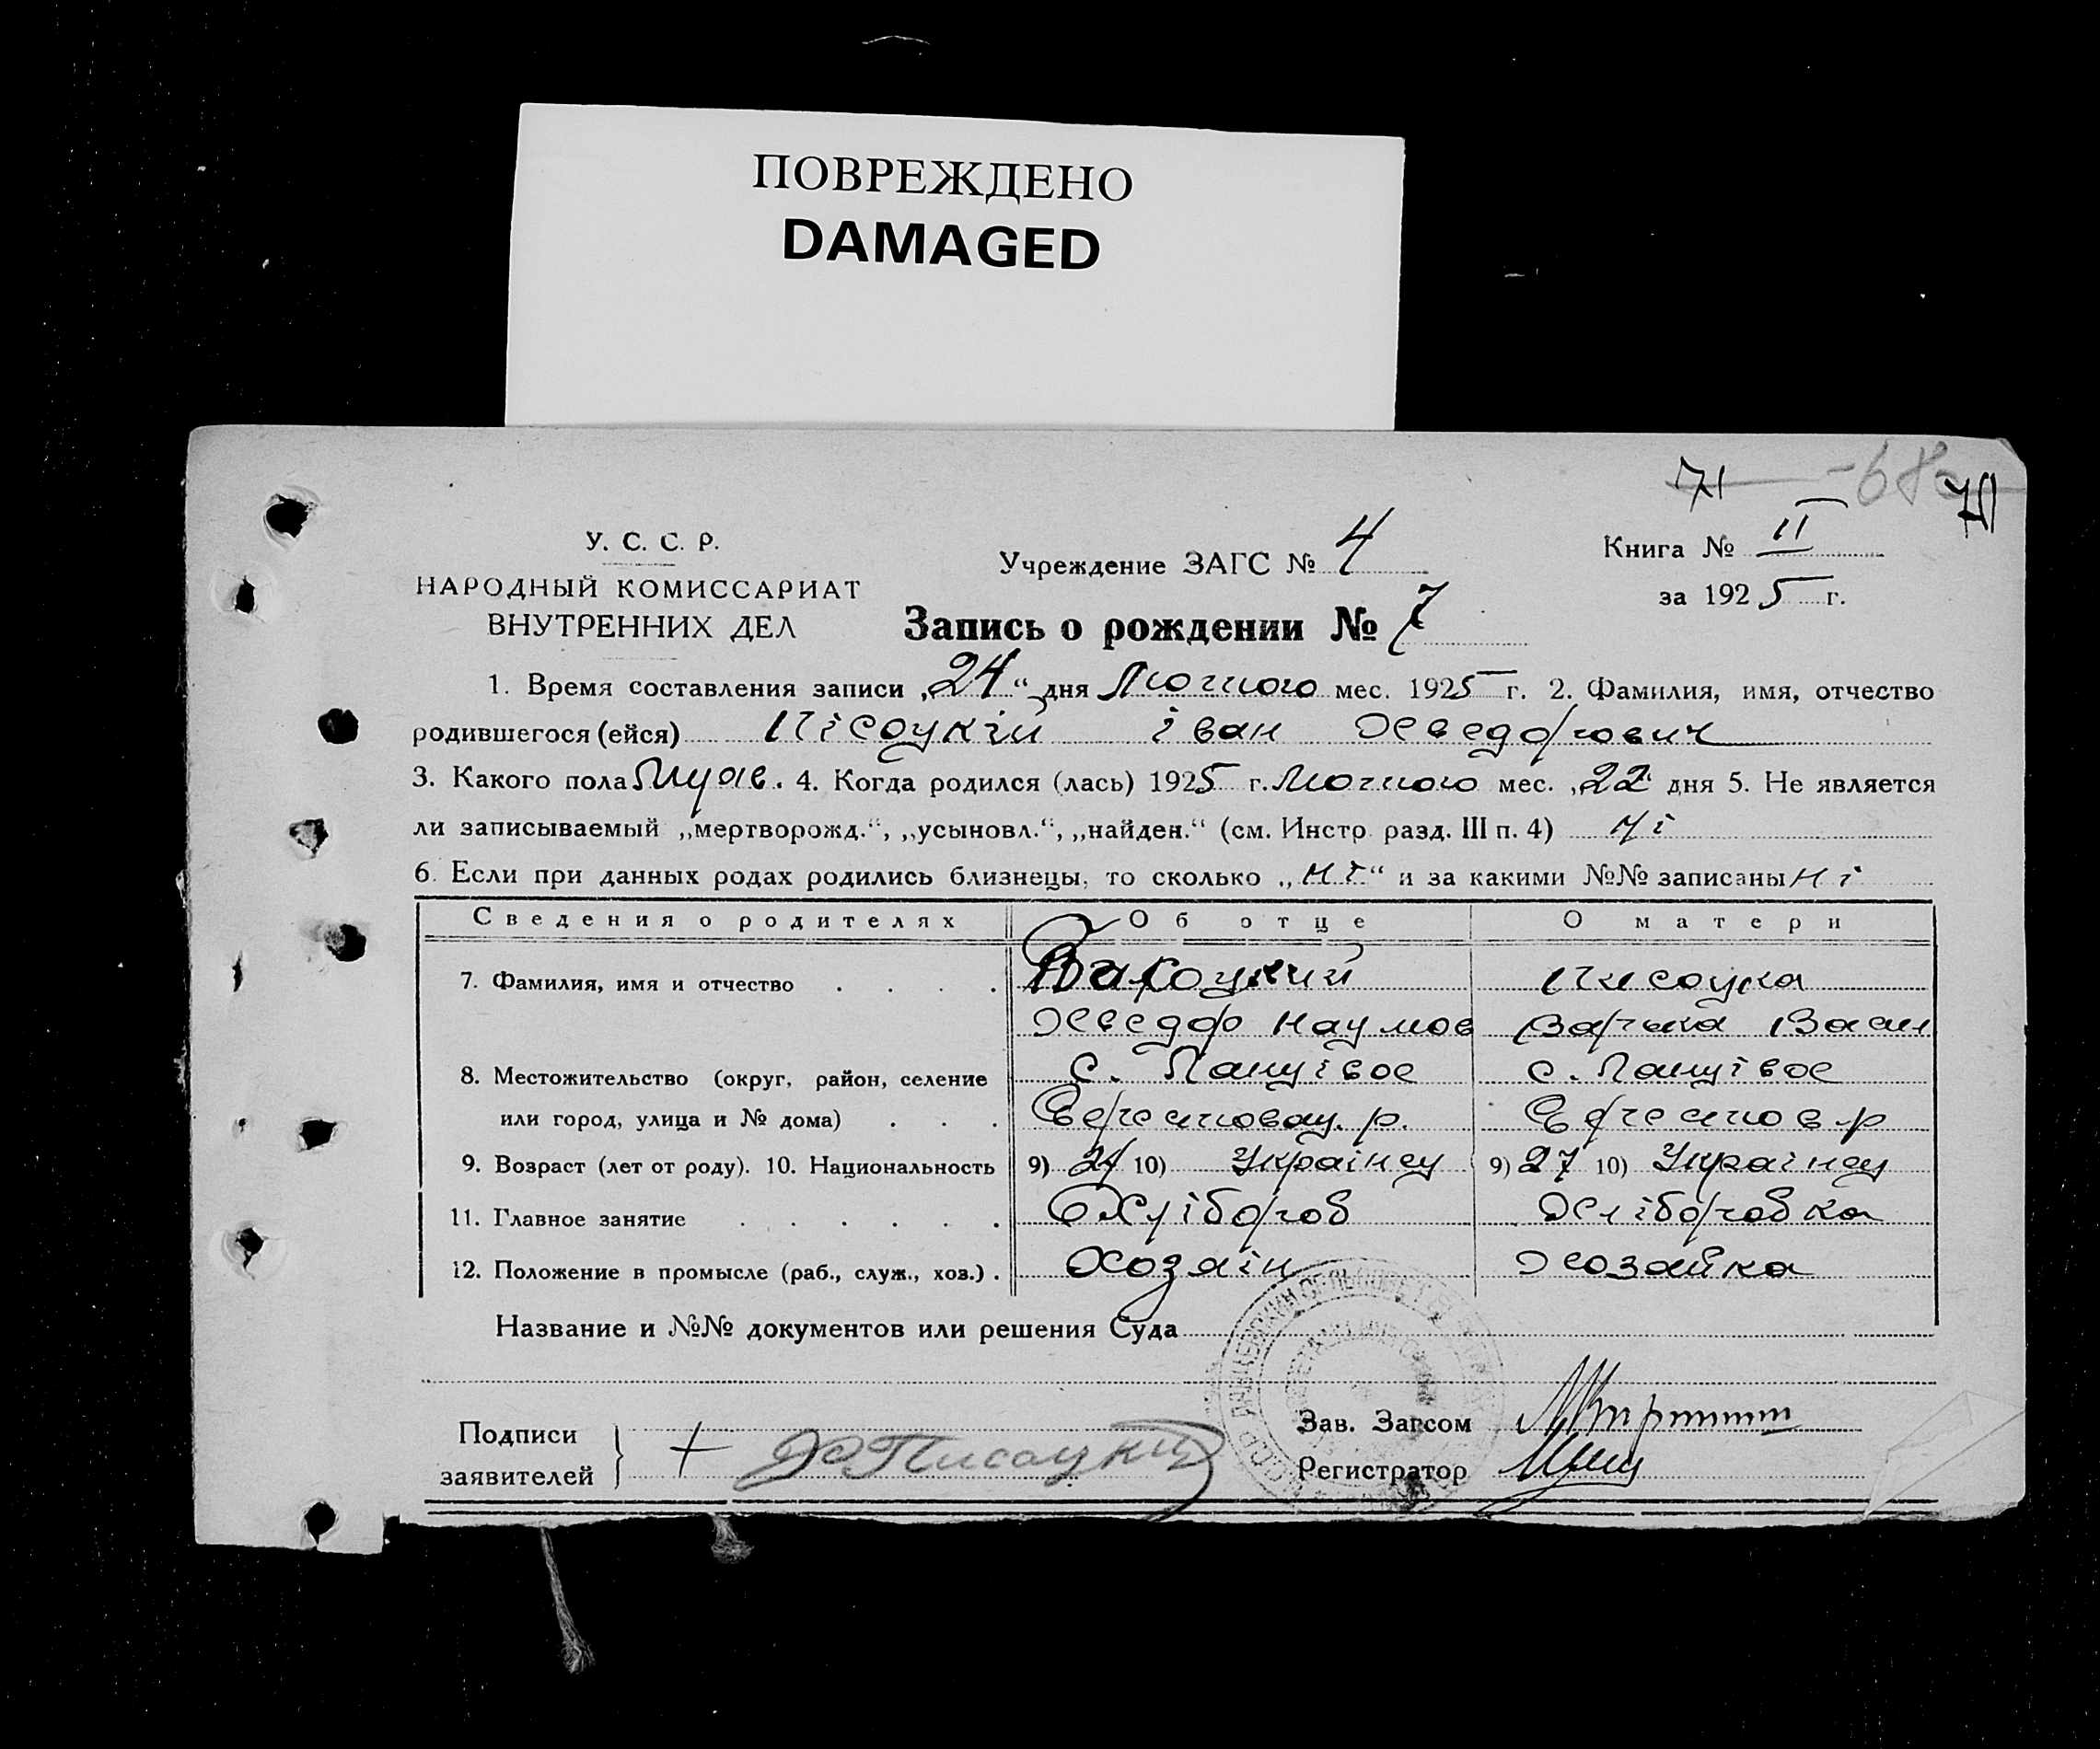 ПОВРЕЖДЕНО
DAMAGED
71 -68- 70
У. С. С. Р.
НАРОДНЫЙ КОМИССАРИАТ
ВНУТРЕННИХ ДЕЛ
Учреждение ЗАГС № 4
Книга № II
за 1925 г.
Запись о рождении № 7
1. Время составления записи „24“ дня Лютого мес. 1925 г. 2. Фамилия, имя, отчество
родившегося (ейся) Пісоцкій іван Хведорович
3. Какого пола Муж. 4. Когда родился (лась) 1925 г. Лютого мес. „22“ дня 5. Не является
ли записываемый „мертворожд.“, „усыновл.“, „найден.“ (см. Инстр. разд. III п. 4) Ні
6. Если при данных родах родились близнецы, то сколько „Ні“ и за какими №№ записаны Ні
Сведения о родителях Об отце О матери
7. Фамилия, имя и отчество Писоцка
Хведор Наумов Варька Васил
8. Местожительство (округ, район, селение с. с.
или город, улица и № дома) р. р
9. Возраст (лет от роду). 10. Национальность 9) 24 10) Українец 9) 27 10) Українец
11. Главное занятие Хлібороб Хліборобка
12. Положение в промысле (раб., служ., хоз.) Хозяін Хозайка
Название и №№ документов или решения Суда
Подписи
заявителей + Х Писоцкий
Зав. Загсом
Регистратор